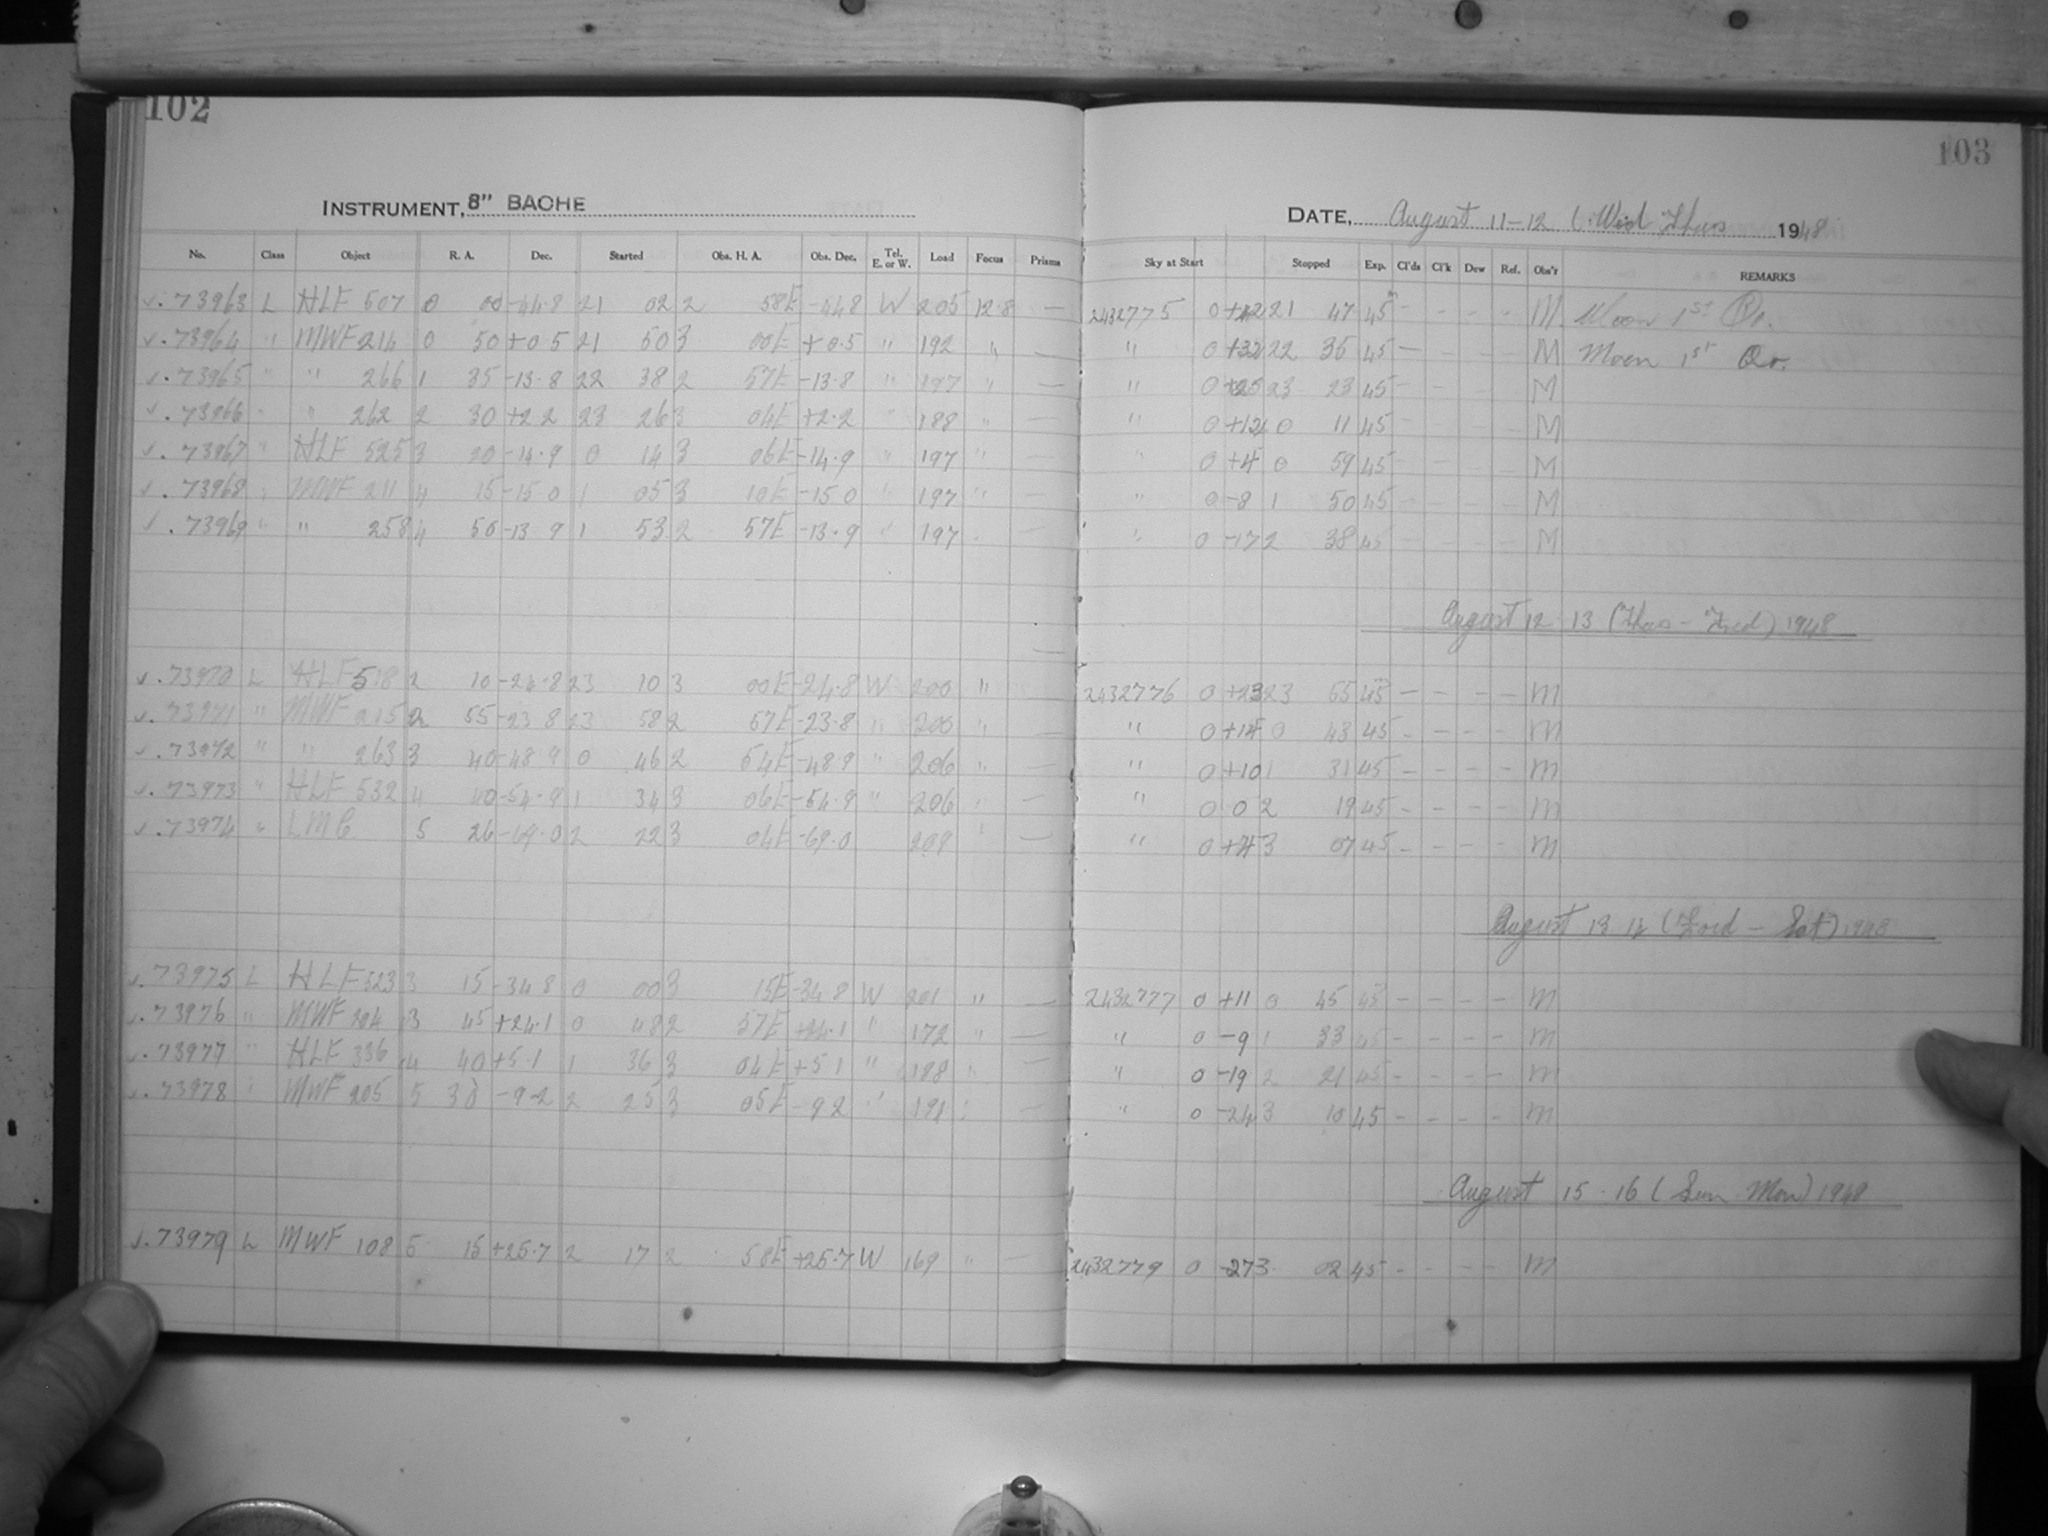 102
103
INSTRUMENT, 8" BACHE
DATE, August 11-12 (Wed Thurs 1948
No. Class Object R. A. Dec. Started Obs. H. A. Obs. Dec. Tel. E. or W. Load Focus Prisms Sky at Start Stopped Exp. Cl'ds Cl'k Dew Ref. Obs'r REMARKS
√. 73963 L HLF 507 0 00 -44.8 21 02 2 58E -44.8 W 205 12.8 — 2432775 0 21 47 45 - - - - M Moon 1st Qr.
√. 73964 " MWF 214 0 50 +0.5 21 50 3 00E +0.5 " 192 " — " 0 +32 22 35 45 — - - - M Moon 1st Qr.
√. 73965 " " 266 1 35 -13.8 22 38 2 57E -13.8 " 197 " — " 0 +25 23 23 45 - - - - M
√. 73966 " " 262 2 30 +2.2 23 26 3 04E +2.2 " 188 " — " 0 +12 0 11 45 - - - - M
√. 73967 " HLF 525 3 20 -14.9 0 14 3 06E -14.9 " 197 " — " 0 +4 0 59 45 - - - - M
√. 73968 " MWF 211 4 15 -15.0 1 05 3 10E -15.0 " 197 " — " 0 -8 1 50 45 - - - - M
√. 73969 " " 258 4 50 -13.9 1 53 2 57E -13.9 " 197 " — " 0 -17 2 38 45 - - - - M
August 12-13 (Thurs - Fried) 1948
√. 73970 L HLF 518 2 10 -24.8 23 10 3 00E -24.8 W 200 " — 2432776 0 +23 23 55 45 — - - - M
√. 73971 " MWF 215 2 55 -23.8 23 58 2 57E -23.8 " 200 " — " 0 +14 0 43 45 - - - - M
√. 73972 " " 263 3 40 -48.9 0 46 2 54E -48.9 " 206 " — " 0 +10 1 31 45 - - - - M
√. 73973 " HLF 532 4 40 -54.9 1 34 3 06E -54.9 " 206 " — " 0 0 2 19 45 - - - - M
√. 73974 " LMC 5 26 -69.0 2 22 3 04E -69.0 209 " — " 0 3 07 45 - - - - M
August 13-14 (Fried - Sat) 1948
√. 73975 L HLF 523 3 15 -34.8 0 00 3 15E -34.8 W 201 " — 2432777 0 +11 0 45 45 - - - - M
√. 73976 " MWF 204 3 45 +24.1 0 48 2 57E +24.1 " 172 " — " 0 -9 1 33 45 - - - - M
√. 73977 " HLF 336 4 40 +5.1 1 36 3 04E +5.1 " 188 " — " 0 -19 2 21 45 - - - - M
√. 73978 " MWF 205 5 30 -9.2 2 25 3 05E -9.2 " 191 " — " 0 -24 3 10 45 - - - - M
August 15-16 (Sun Mon) 1948
√. 73979 L MWF 108 5 15 +25.7 2 17 2 58E +25.7 W 169 " — 2432779 0 -27 3 02 45 - - - - M